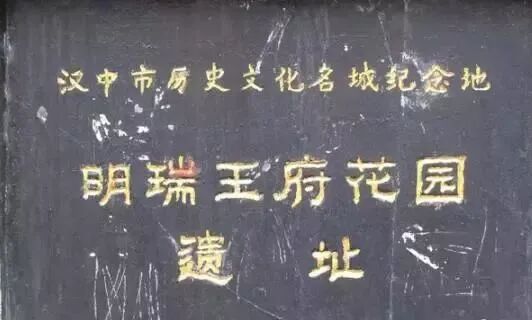 汉中市历史文化名城纪念地
明瑞王府花园
遗址